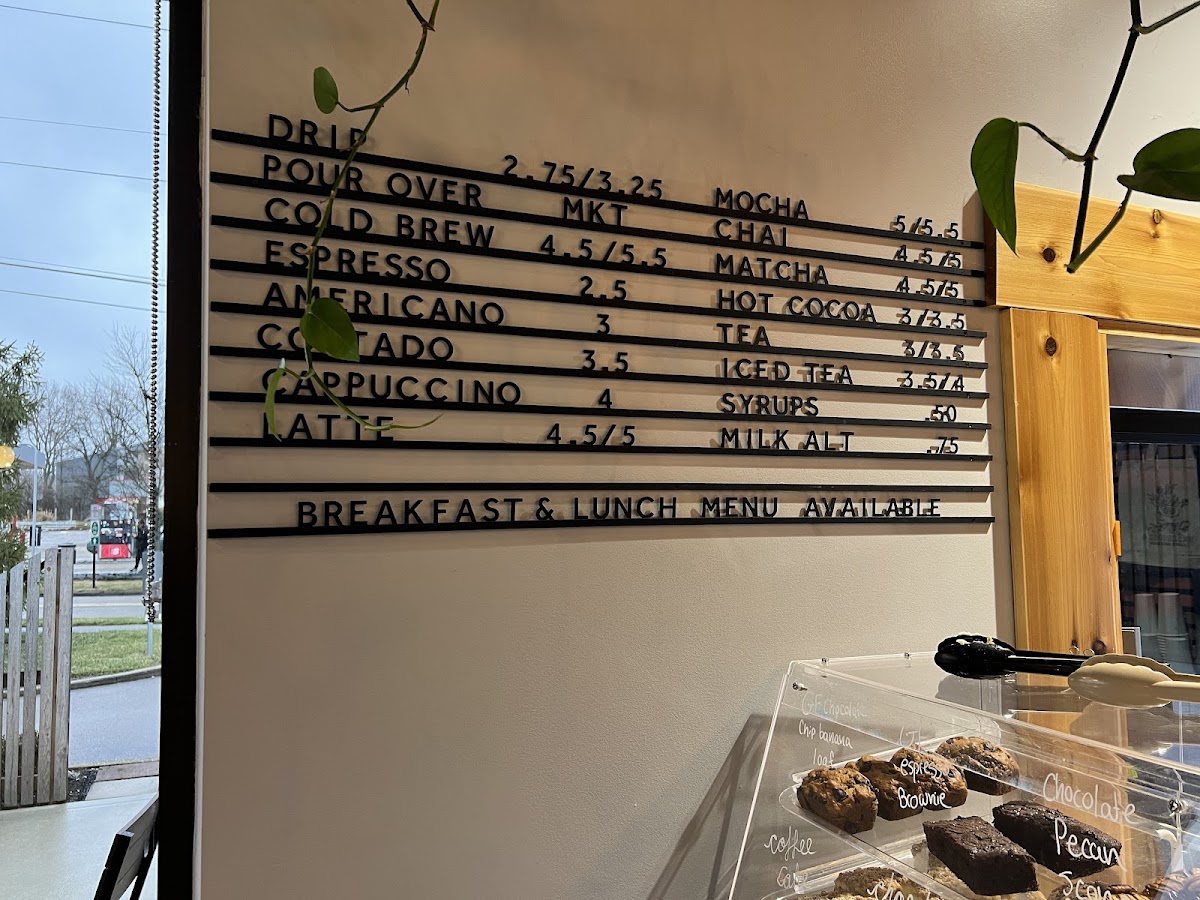 DRIP 2.75/3.25
POUR OVER MKT
COLD BREW 4.5/5.5
ESPRESSO 2.5
AMERICANO 3
CORTADO 3.5
CAPPUCCINO 4
LATTE 4.5/5
MOCHA 5/5.5
CHAI 4.5/5
MATCHA 4.5/5
HOT COCOA 3/3.5
TEA 3/3.5
ICED TEA 3.5/4
SYRUPS .50
MILK ALT .75
BREAKFAST & LUNCH MENU AVAILABLE
GF Chocolate
Chip banana
loaf
espresso
Brownie
Chocolate
Pecan
coffee